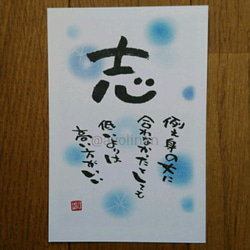 志
例え身の丈に
合わなかったとしても
低いよりは
高い方がいい